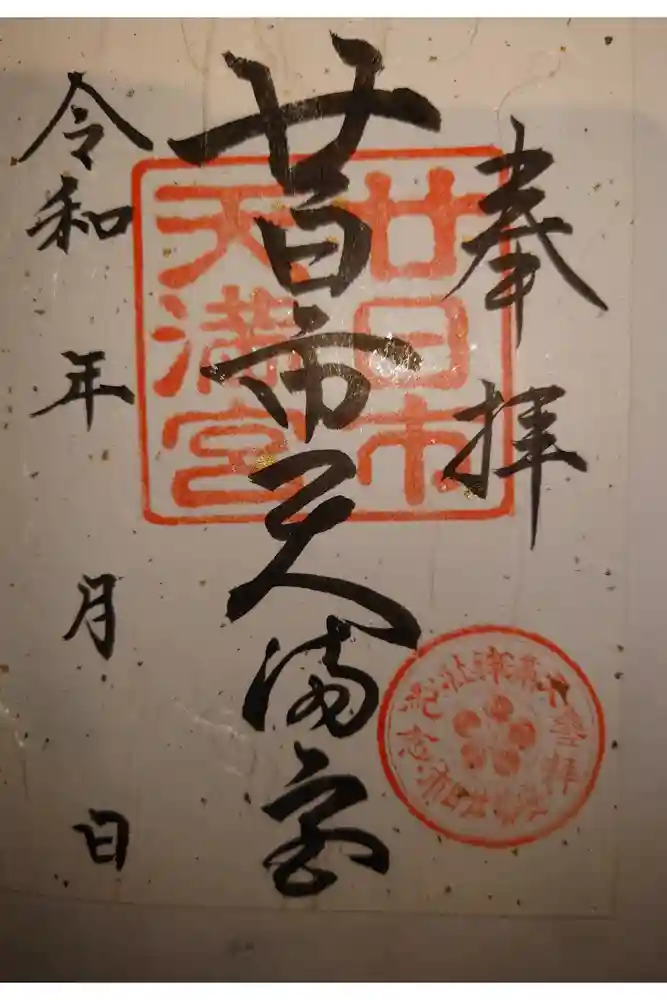 奉拝
廿日市天満宮
令和 年 月 日
廿日市
天満宮
参拝
記念